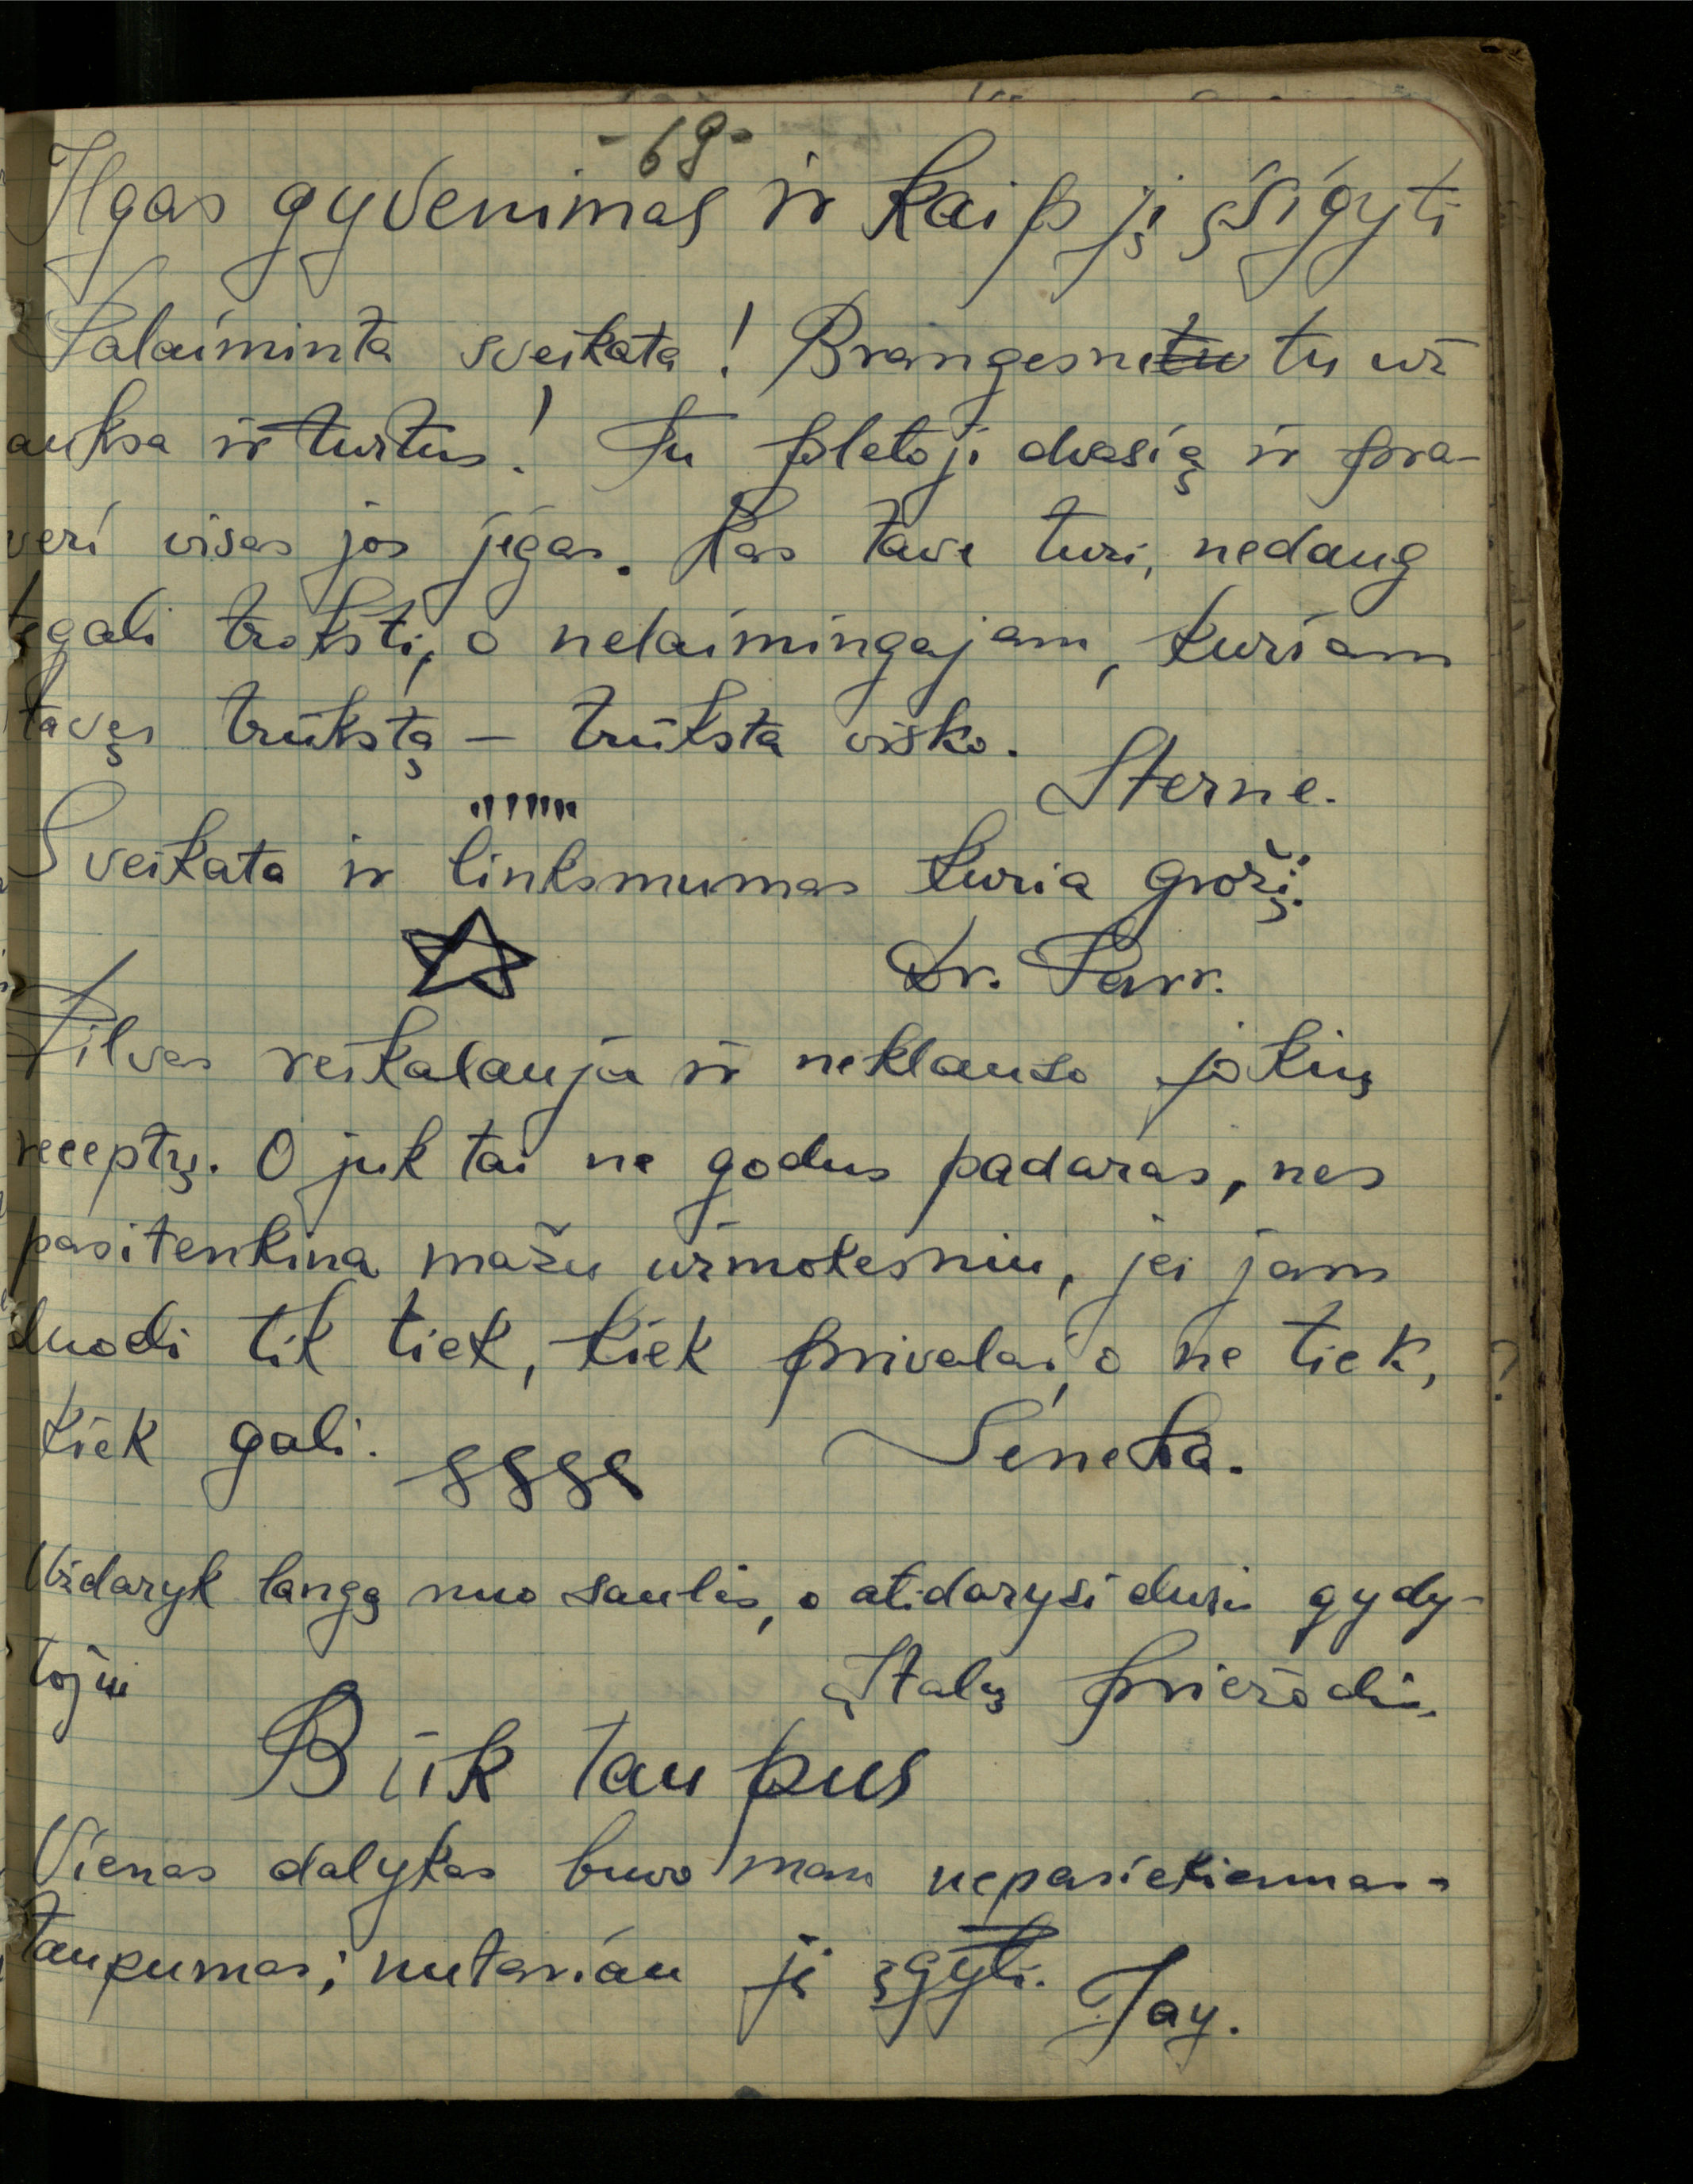 -69-
Ilgas gyvenimas ir kaip jį įsigyti
Palaiminta sveikata! Brangesnė tu už
auksa ir turtus! Tu pletoji dvasią ir pra-
veri visas jos jėgas. Kas tave turi, nedaug
tegali trokšti, o nelaimingajam, kuriam
tavęs trūkstą – trūksta visko.
Sterne.
Sveikata ir linksmumas kuria grožį.
Dr. Parr.
Pilvas reikalauja ir neklauso jokių
receptų. O juk tai ne godus padaras, nes
pasitenkina mažu užmokesniu, jei jam
duodi tik tiek, kiek privalai, o ne tiek,
kiek gali.
Seneka.
Uždaryk langą nuo saulės, o atidarysi duris gydy-
tojui
Italų priežodis.
Būk taupus
Vienas dalykas buvo man nepasiekiamas -
taupumas; nutariau jį įgyti.
Jay.